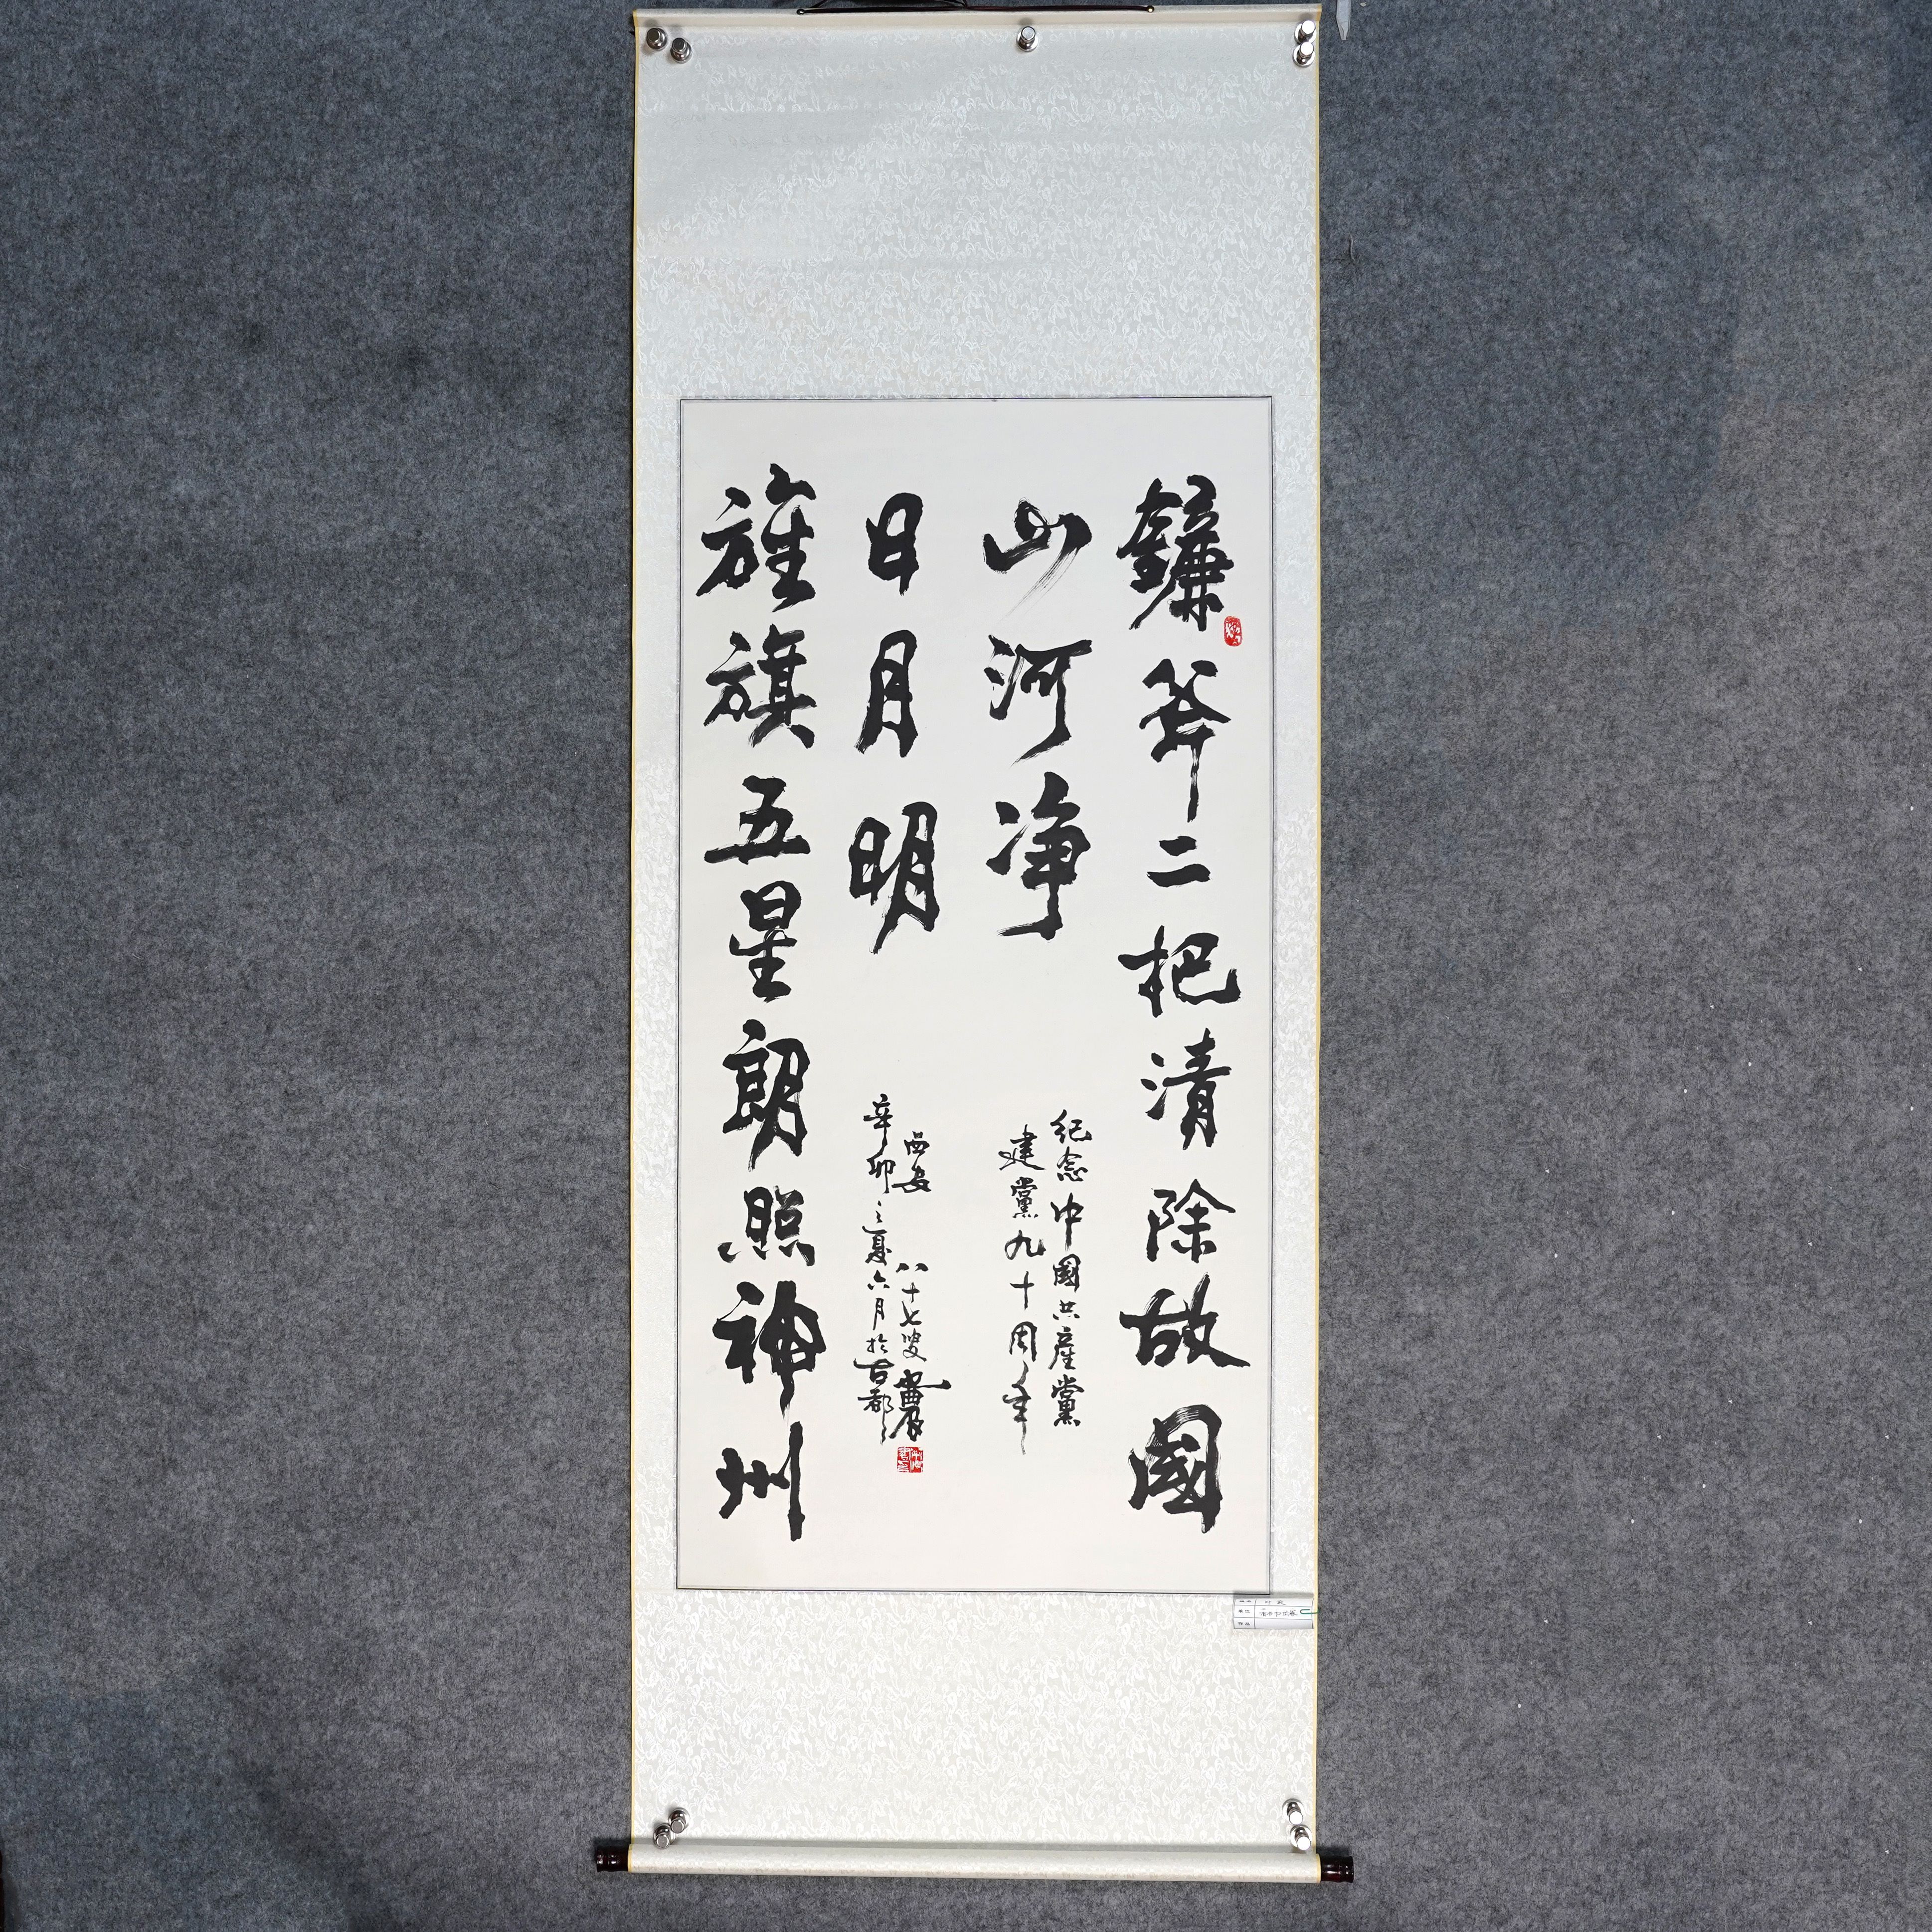 鐮斧二把清除故國
山河净
纪念中國共產黨
建黨九十周年
旌旗五星朗照神州
日月明
西安 八十七叟
辛卯之夏六月於古都